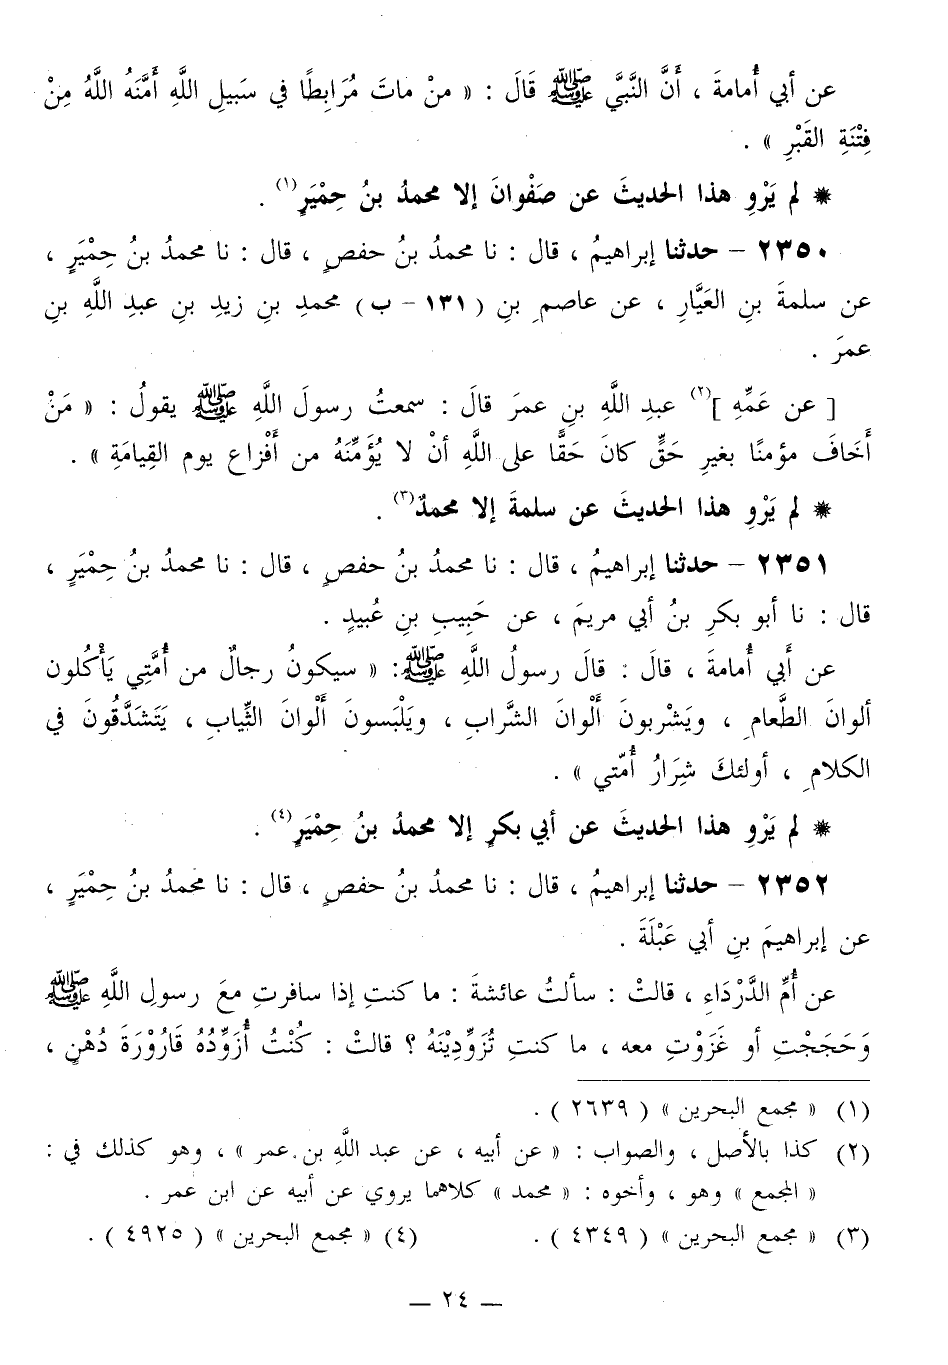 عن أبي أُمامةَ ، أَنَّ النَّبيَّ ﷺ قَالَ : « منْ ماتَ مُرَابِطًا في سَبيلِ اللَّهِ أَمَّنَهُ اللَّهُ مِنْ
فِتْنَةِ القَبْرِ » .
* لم يَرْوِ هذا الحديثَ عن صَفْوانَ إلا محمدُ بنُ حِمْيَرٍ(١) .
٢٣٥٠ – حدثنا إبراهيمُ ، قال : نا محمدُ بنُ حفصٍ ، قال : نا محمدُ بنُ حِمْيَرٍ ،
عن سلمةَ بنِ العَيَّارِ ، عن عاصمِ بنِ ( ١٣١ – ب ) محمدِ بنِ زيدِ بنِ عبدِ اللَّهِ بنِ
عمرَ .
[ عن عَمِّهِ ](٢) عبدِ اللَّهِ بنِ عمرَ قالَ : سمعتُ رسولَ اللَّهِ ﷺ يقولُ : « مَنْ
أَخَافَ مؤمنًا بغيرِ حَقٍّ كانَ حَقًّا على اللَّهِ أنْ لا يُؤَمِّنَهُ من أَفْزاع يوم القِيامَةِ » .
* لم يَرْوِ هذا الحديثَ عن سلمةَ إلا محمدٌ(٣) .
٢٣٥١ – حدثنا إبراهيمُ ، قال : نا محمدُ بنُ حفصٍ ، قال : نا محمدُ بنُ حِمْيَرٍ ،
قال : نا أبو بكرِ بنُ أبي مريمَ ، عن حَبِيبِ بنِ عُبيدٍ .
عن أَبي أُمامةَ ، قالَ : قالَ رسولُ اللَّهِ ﷺ : « سيكونُ رجالٌ من أُمَّتِي يَأْكُلون
ألوانَ الطَّعامِ ، ويَشْربونَ أَلْوانَ الشَّراب ، ويَلْبَسونَ أَلْوانَ الثِّياب ، يَتَشَدَّقُونَ في
الكلامِ ، أولئكَ شِرَارُ أُمّتي » .
* لم يَرْوِ هذا الحديثَ عن أبي بكرٍ إلا محمدُ بنُ حِمْيَرٍ(٤) .
٢٣٥٢ – حدثنا إبراهيمُ ، قال : نا محمدُ بنُ حفصٍ ، قال : نا محمدُ بنُ حِمْيَرٍ ،
عن إبراهيمَ بنِ أبي عَبْلَةَ .
عن أُمِّ الدَّرْدَاءِ ، قالتْ : سألتُ عائشةَ : ما كنتِ إذا سافرتِ معَ رسولِ اللَّهِ ﷺ
وَحَجَجْتِ أو غَزَوْتِ معه ، ما كنتِ تُزَوِّدِيْنَهُ ؟ قالتْ : كُنْتُ أُزَوِّدُهُ قَارُوْرَةَ دُهْنٍ ،
(١) « مجمع البحرين » ( ٢٦٣٩ ) .
(٢) كذا بالأصل ، والصواب : « عن أبيه ، عن عبد اللَّهِ بن عمر » ، وهو كذلك في :
« المجمع » وهو ، وأخوه : « محمد » كلاهما يروي عن أبيه عن ابن عمر .
(٣) « مجمع البحرين » ( ٤٣٤٩ ) . (٤) « مجمع البحرين » ( ٤٩٢٥ ) .
— ٢٤ —